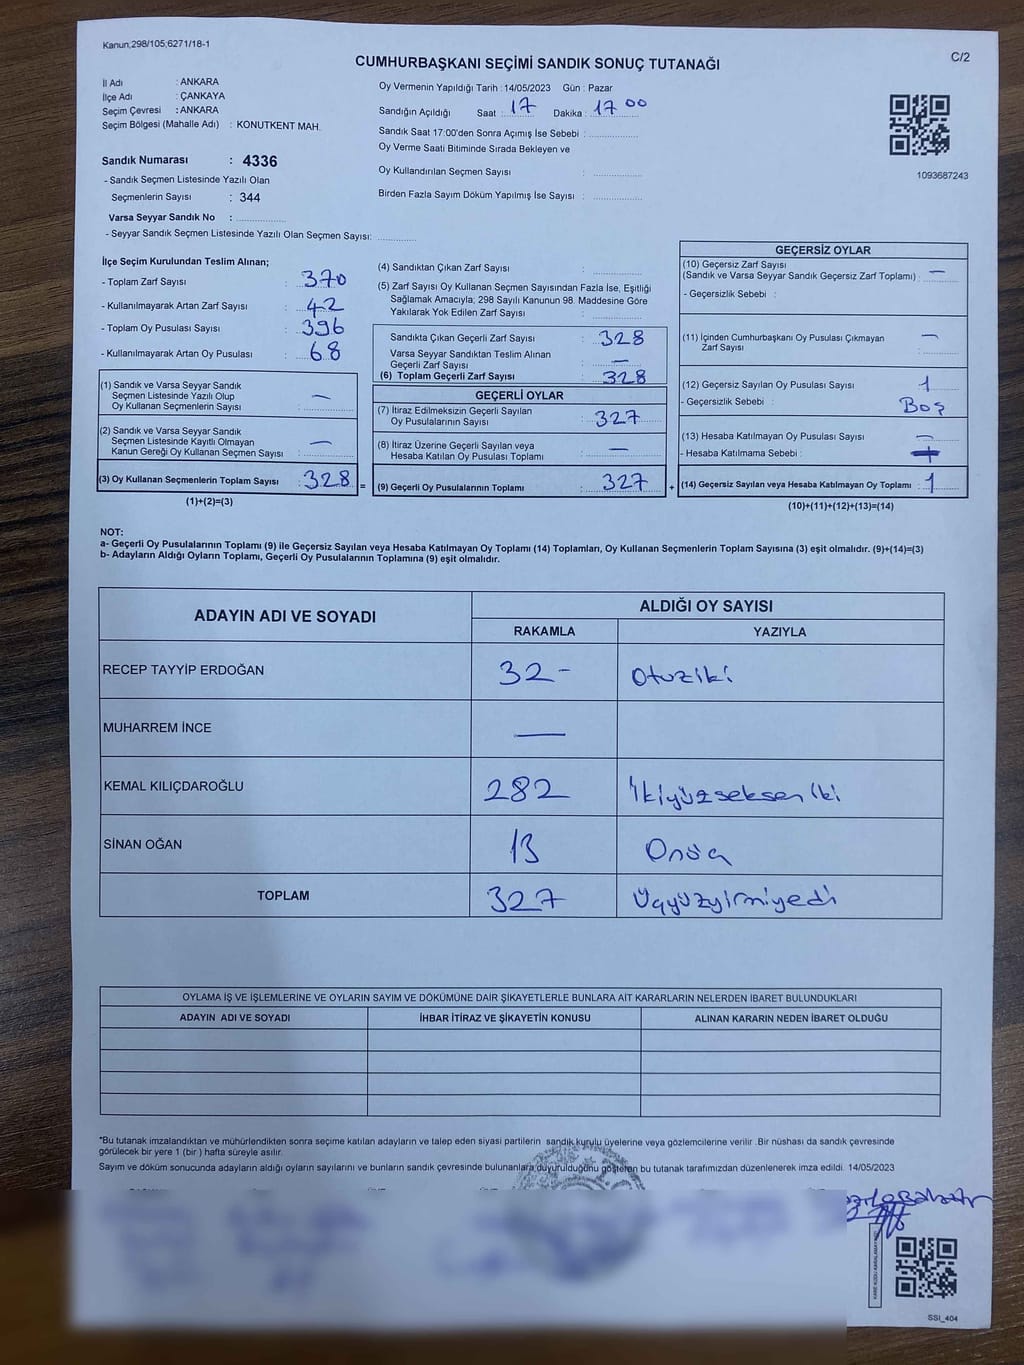 Kanun;298/105;6271/18-1
C/2
CUMHURBAŞKANI SEÇİMİ SANDIK SONUÇ TUTANAĞI
İl Adı : ANKARA
İlçe Adı : ÇANKAYA
Seçim Çevresi : ANKARA
Seçim Bölgesi (Mahalle Adı) : KONUTKENT MAH.
Sandık Numarası : 4336
- Sandık Seçmen Listesinde Yazılı Olan
Seçmenlerin Sayısı : 344
Varsa Seyyar Sandık No :
- Seyyar Sandık Seçmen Listesinde Yazılı Olan Seçmen Sayısı:
Oy Vermenin Yapıldığı Tarih : 14/05/2023 Gün : Pazar
Sandığın Açıldığı Saat : 17 Dakika : 17 00
Sandık Saat 17:00'den Sonra Açımış İse Sebebi :
Oy Verme Saati Bitiminde Sırada Bekleyen ve
Oy Kullandırılan Seçmen Sayısı :
Birden Fazla Sayım Döküm Yapılmış İse Sayısı :
1093687243
İlçe Seçim Kurulundan Teslim Alınan;
- Toplam Zarf Sayısı : 370
- Kullanılmayarak Artan Zarf Sayısı : 42
- Toplam Oy Pusulası Sayısı : 396
- Kullanılmayarak Artan Oy Pusulası : 68
(1) Sandık ve Varsa Seyyar Sandık
Seçmen Listesinde Yazılı Olup
Oy Kullanan Seçmenlerin Sayısı : —
(2) Sandık ve Varsa Seyyar Sandık
Seçmen Listesinde Kayıtlı Olmayan
Kanun Gereği Oy Kullanan Seçmen Sayısı : —
(3) Oy Kullanan Seçmenlerin Toplam Sayısı : 328 =
(1)+(2)=(3)
(4) Sandıktan Çıkan Zarf Sayısı :
(5) Zarf Sayısı Oy Kullanan Seçmen Sayısından Fazla İse, Eşitliği
Sağlamak Amacıyla; 298 Sayılı Kanunun 98. Maddesine Göre
Yakılarak Yok Edilen Zarf Sayısı :
Sandıkta Çıkan Geçerli Zarf Sayısı : 328
Varsa Seyyar Sandıktan Teslim Alınan
Geçerli Zarf Sayısı : —
(6) Toplam Geçerli Zarf Sayısı : 328
GEÇERLİ OYLAR
(7) İtiraz Edilmeksizin Geçerli Sayılan
Oy Pusulalarının Sayısı : 327
(8) İtiraz Üzerine Geçerli Sayılan veya
Hesaba Katılan Oy Pusulası Toplamı : —
(9) Geçerli Oy Pusulalarının Toplamı : 327 +
GEÇERSİZ OYLAR
(10) Geçersiz Zarf Sayısı
(Sandık ve Varsa Seyyar Sandık Geçersiz Zarf Toplamı) : —
- Geçersizlik Sebebi :
(11) İçinden Cumhurbaşkanı Oy Pusulası Çıkmayan
Zarf Sayısı : —
(12) Geçersiz Sayılan Oy Pusulası Sayısı : 1
- Geçersizlik Sebebi : Boş
(13) Hesaba Katılmayan Oy Pusulası Sayısı : —
- Hesaba Katılmama Sebebi :
(14) Geçersiz Sayılan veya Hesaba Katılmayan Oy Toplamı : 1
(10)+(11)+(12)+(13)=(14)
NOT:
a- Geçerli Oy Pusulalarının Toplamı (9) ile Geçersiz Sayılan veya Hesaba Katılmayan Oy Toplamı (14) Toplamları, Oy Kullanan Seçmenlerin Toplam Sayısına (3) eşit olmalıdır. (9)+(14)=(3)
b- Adayların Aldığı Oyların Toplamı, Geçerli Oy Pusulalarının Toplamına (9) eşit olmalıdır.
ADAYIN ADI VE SOYADI ALDIĞI OY SAYISI
RAKAMLA YAZIYLA
RECEP TAYYİP ERDOĞAN 32- Otuziki
MUHARREM İNCE —
KEMAL KILIÇDAROĞLU 282 İkiyüzseksen iki
SİNAN OĞAN 13 Onüç
TOPLAM 327 Üçyüzyirmiyedi
OYLAMA İŞ VE İŞLEMLERİNE VE OYLARIN SAYIM VE DÖKÜMÜNE DAİR ŞİKAYETLERLE BUNLARA AİT KARARLARIN NELERDEN İBARET BULUNDUKLARI
ADAYIN ADI VE SOYADI İHBAR İTİRAZ VE ŞİKAYETİN KONUSU ALINAN KARARIN NEDEN İBARET OLDUĞU
*Bu tutanak imzalandıktan ve mühürlendikten sonra seçime katılan adayların ve talep eden siyasi partilerin sandık kurulu üyelerine veya gözlemcilerine verilir .Bir nüshası da sandık çevresinde
görülecek bir yere 1 (bir ) hafta süreyle asılır.
Sayım ve döküm sonucunda adayların aldığı oyların sayılarını ve bunların sandık çevresinde bulunanlara duyurulduğunu gösteren bu tutanak tarafımızdan düzenlenerek imza edildi. 14/05/2023
SSI_404